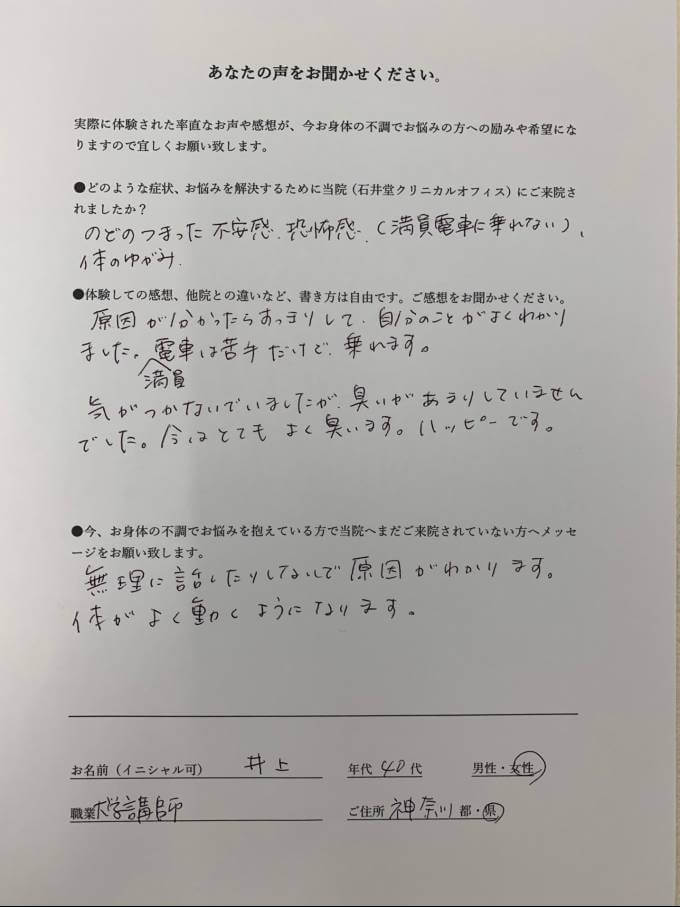 あなたの声をお聞かせください。
実際に体験された率直なお声や感想が、今お身体の不調でお悩みの方への励みや希望にな
りますので宜しくお願い致します。
●どのような症状、お悩みを解決するために当院（石井堂クリニカルオフィス）にご来院さ
れましたか？
のどのつまった不安感、恐怖感、（満員電車に乗れない）、
体のゆがみ、
●体験しての感想、他院との違いなど、書き方は自由です。ご感想をお聞かせください。
原因が分かったらすっきりして、自分のことがよくわかり
ました。電車は苦手だけで、乗れます。
満員
気がつかないでいましたが、臭いがあまりしていません
でした。今はとてもよく臭います。ハッピーです。
●今、お身体の不調でお悩みを抱えている方で当院へまだご来院されていない方へメッセ
ージをお願い致します。
無理に話したりしないで原因がわかります。
体がよく動くようになります。
お名前（イニシャル可） 井上 年代 40代 男性・女性
職業 大学講師 ご住所 神奈川 都・県